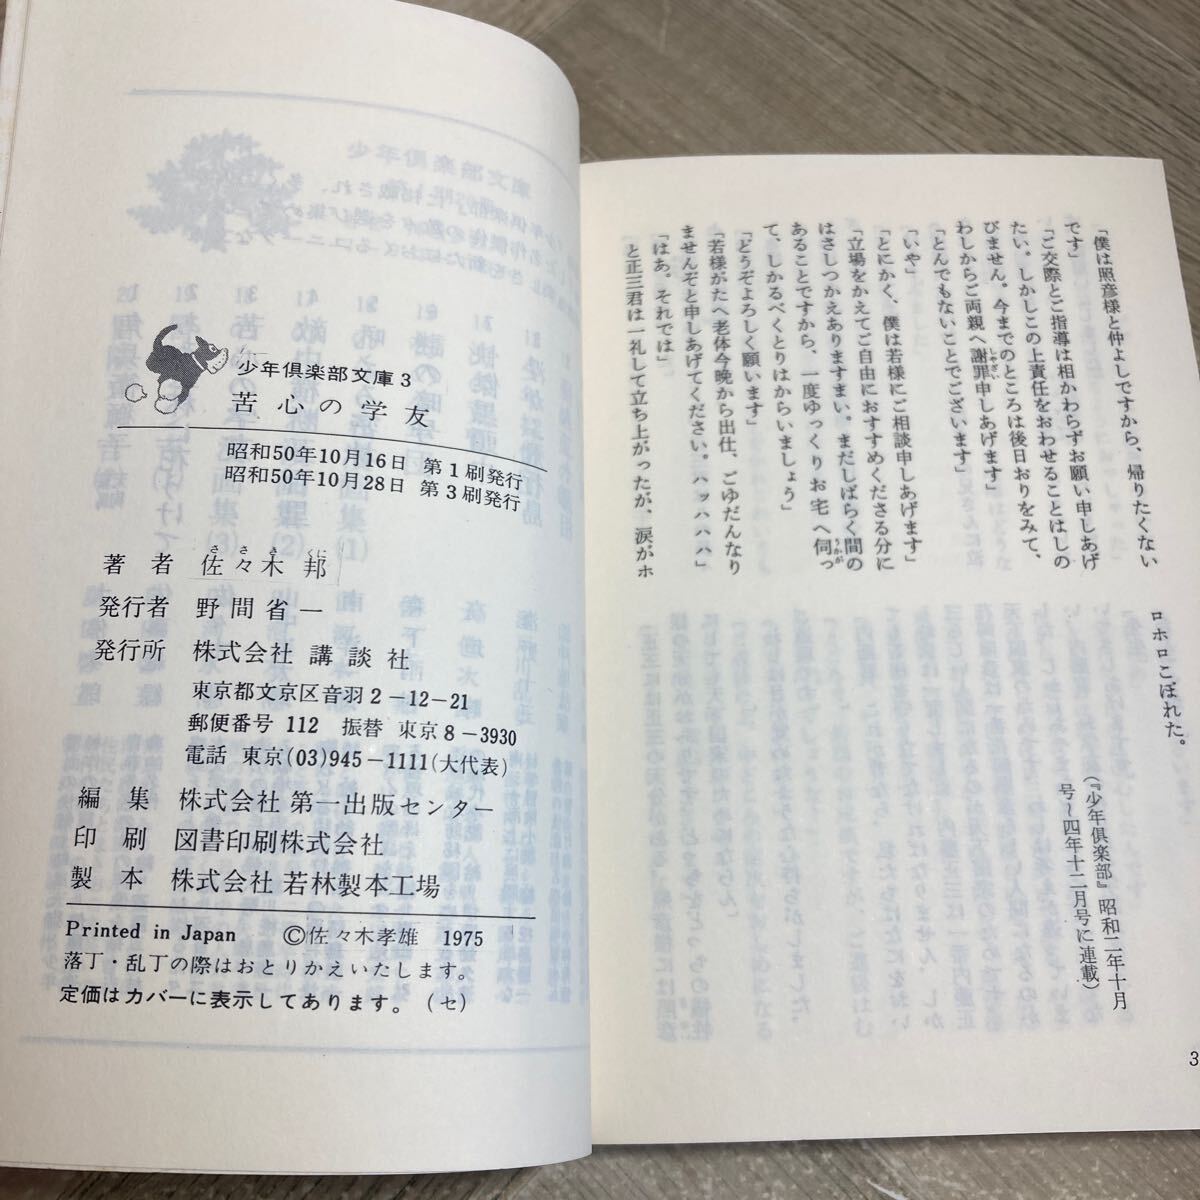 少年倶楽部文庫3
苦心の学友
昭和50年10月16日 第1刷発行
昭和50年10月28日 第3刷発行
著者 佐々木邦
ささきくに
発行者 野間省一
発行所 株式会社 講談社
東京都文京区音羽2-12-21
郵便番号 112 振替 東京8-3930
電話 東京(03)945-1111(大代表)
編集 株式会社 第一出版センター
印刷 図書印刷株式会社
製本 株式会社 若林製本工場
Printed in Japan ©佐々木孝雄 1975
落丁・乱丁の際はおとりかえいたします。
定価はカバーに表示してあります。(セ)
「僕は照彦様と仲よしですから、帰りたくない
です」
「ご交際とご指導は相かわらずお願い申しあげ
たい。しかしこの上責任をおわせることはしの
びません。今までのところは後日おりをみて、
わしからご両親へ謝罪申しあげます」
しゃざい
「とんでもないことでございます」
「いや」
「とにかく、僕は若様にご相談申しあげます」
「立場をかえてご自由におすすめくださる分に
はさしつかえありますまい。まだしばらく間の
あることですから、一度ゆっくりお宅へ伺っ
うかが
て、しかるべくとりはからいましょう」
「どうぞよろしく願います」
「若様がたへ老体今晩から出仕、ごゆだんなり
ませんぞと申しあげてください。ハッハハハ」
「はあ。それでは」
と正三君は一礼して立ち上がったが、涙がホ
ロホロこぼれた。
(『少年倶楽部』昭和二年十月
号〜四年十二月号に連載)
3